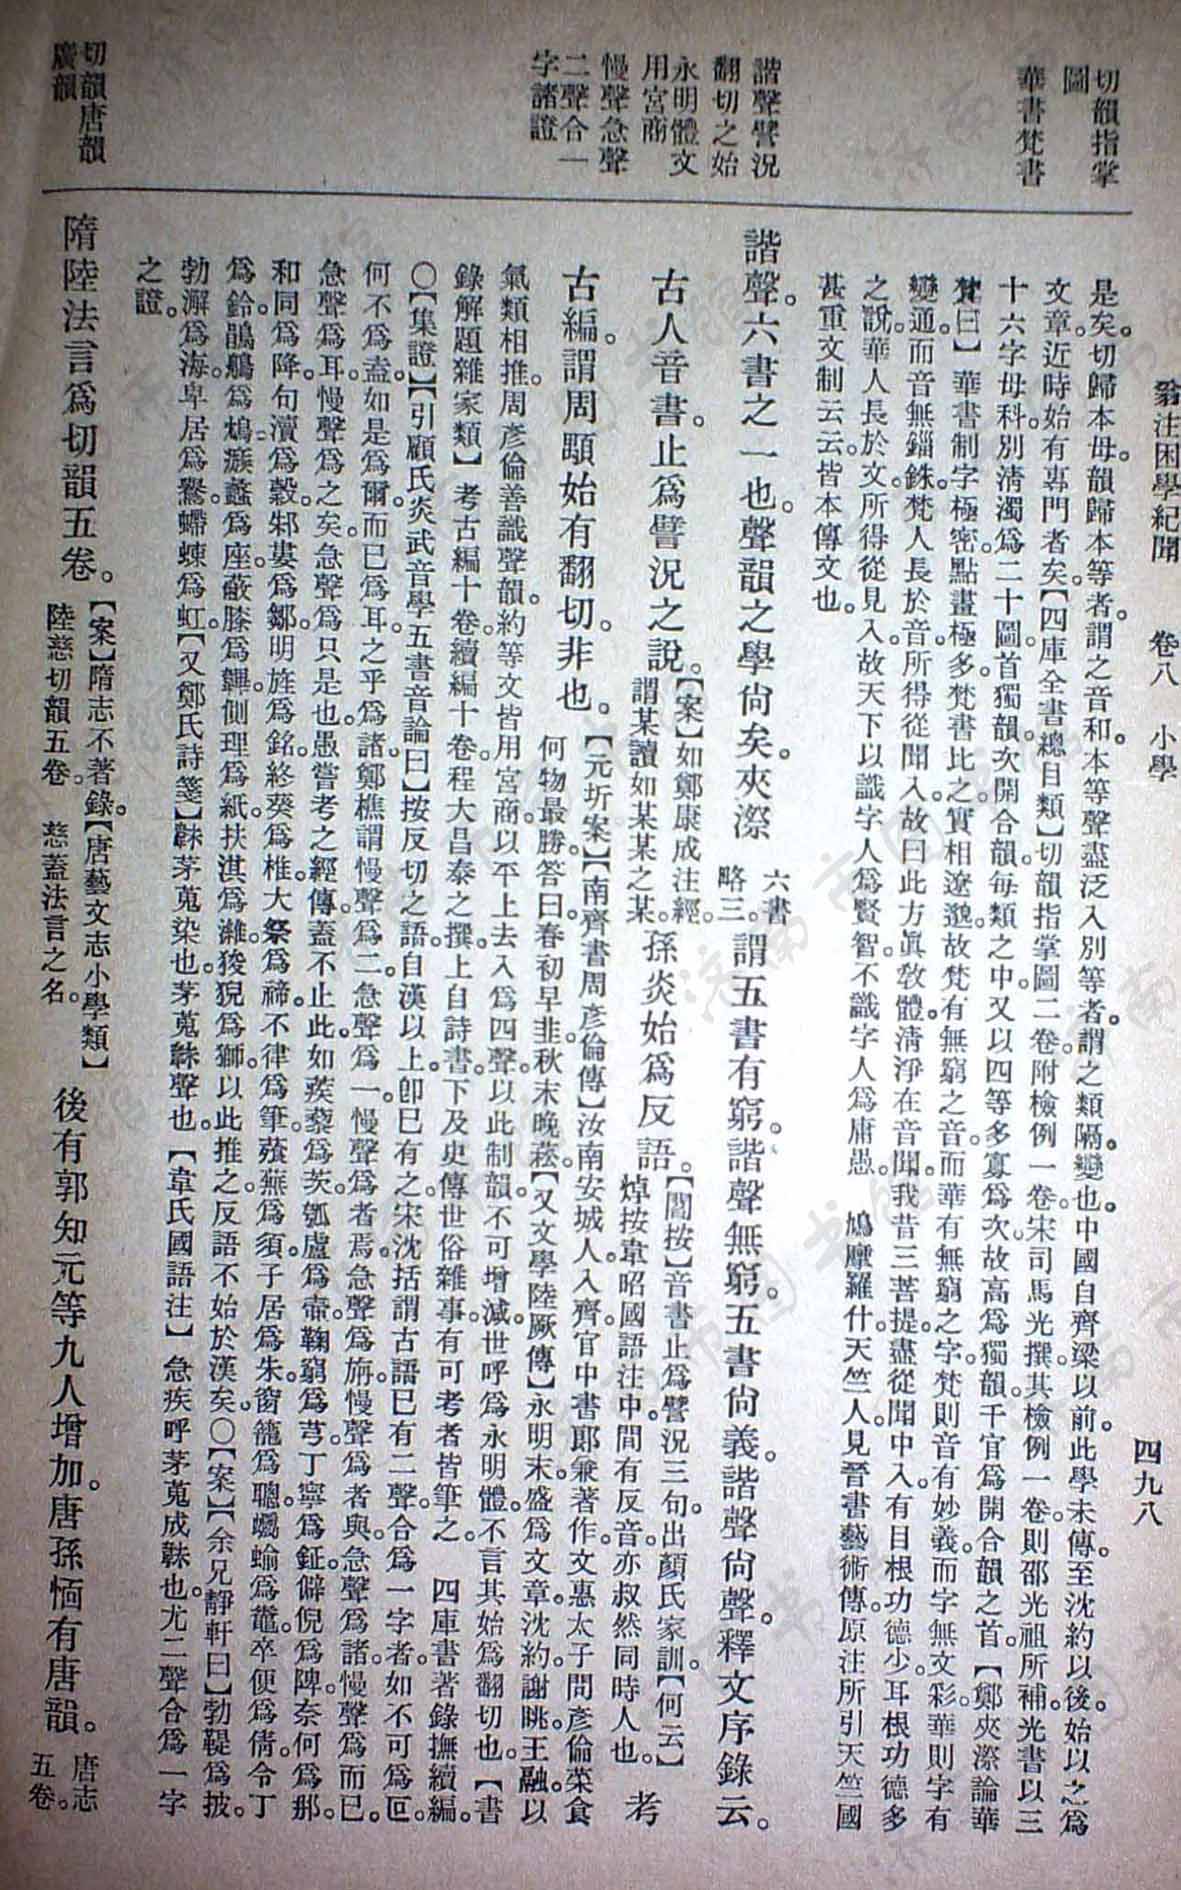 翁注困學紀聞　卷八　小學　四九八
切韻指掌
圖
華書梵書
諧聲譬況
翻切之始
永明體文
用宮商
慢聲急聲
二聲合一
字諸證
切韻唐韻
廣韻
是矣。切歸本母。韻歸本等者。謂之音和。本等聲盡泛入別等者。謂之類隔。變也。中國自齊梁以前。此學未傳。至沈約以後。始以之為
文章。近時始有專門者矣。【四庫全書總目類】切韻指掌圖二卷。附檢例一卷。宋司馬光撰。其檢例一卷。則邵光祖所補。光書以三
十六字母科別清濁。為二十圖。首獨韻。次開合韻。每類之中。又以四等多寡為次。故高為獨韻。干官為開合韻之首。【鄭夾漈論華
梵曰】華書制字極密。點畫極多。梵書比之。實相遼邈。故梵有無窮之音。而華有無窮之字。梵則音有妙義。而字無文彩。華則字有
變通。而音無錙銖。梵人長於音。所得從聞入。故曰此方眞敎體。清淨在音聞。我昔三菩提。盡從聞中入。有目根功德少。耳根功德多
之說。華人長於文。所得從見入。故天下以識字人爲賢智。不識字人爲庸愚。　鳩摩羅什天竺人。見晉書藝術傳。原注所引天竺國
甚重文制云云。皆本傳文也。
諧聲。六書之一也。聲韻之學尙矣。夾漈六書略三。謂五書有窮。諧聲無窮。五書尙義。諧聲尙聲。釋文序錄云。
古人音書。止爲譬況之說。【案】如鄭康成注經。謂某讀如某某之某。孫炎始爲反語。【閻按】音書止爲譬況三句。出顏氏家訓。【何云】焯按韋昭國語注中。間有反音。亦叔然同時人也。考
古編。謂周顒始有翻切。非也。【元圻案】【南齊書周彥倫傳】汝南安城人。入齊。官中書郎兼著作。文惠太子問彥倫菜食何物最勝。答曰。春初早韭。秋末晚菘。【又文學陸厥傳】永明末。盛爲文章。沈約謝眺。王融。以
氣類相推。周彥倫善識聲韻。約等文皆用宮商。以平上去入爲四聲。以此制韻。不可增減。世呼爲永明體。不言其始爲翻切也。【書
錄解題雜家類】考古編十卷。續編十卷。程大昌泰之撰。上自詩書。下及史傳。世俗雜事。有可考者皆筆之。　四庫書著錄撫續編。
○【集證】【引顧氏炎武音學五書音論曰】按反切之語。自漢以上。卽已有之。宋沈括謂古語已有二聲。合爲一字者。如不可爲叵。
何不爲盍。如是爲爾。而已爲耳。之乎爲諸。鄭樵謂慢聲爲二。急聲爲一。慢聲爲者焉。急聲爲旃。慢聲爲者與。急聲爲諸。慢聲爲而已。
急聲爲耳。慢聲爲之矣。急聲爲只。是也。愚嘗考之經傳。蓋不止此。如蒺藜爲茨。瓠盧爲壺。鞠窮爲芎。丁寧爲鉦。僻倪爲陴。奈何爲那。
和同爲降。句瀆爲穀。邾婁爲鄒。明旌爲銘。終葵爲椎。大祭爲禘。不律爲筆。薞蕪爲須。子居爲朱。窗籠爲聰。蠾蝓爲鼄。卒便爲倩。令丁
爲鈴。鶻鵃爲鳩。瘯蠡爲痤。蔽膝爲韠。側理爲紙。扶淇爲濰。狻猊爲獅。以此推之。反語不始於漢矣。○【案】【余兄靜軒曰】勃鞮爲披。
勃澥爲海。卑居爲鸒。螮蝀爲虹。【又鄭氏詩箋】韎茅蒐染也。茅蒐韎聲也。【韋氏國語注】急疾呼茅蒐成韎也。尤二聲合爲一字
之證。
隋陸法言爲切韻五卷。【案】隋志不著錄。【唐藝文志小學類】陸慈切韻五卷。慈蓋法言之名。後有郭知元等九人增加。唐孫愐有唐韻。唐志五卷。